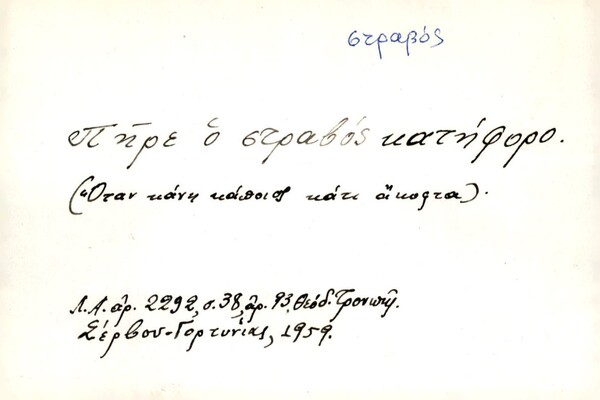 στραβός
Πῆρε ὁ στραβός κατήφορο.
(Ὅταν κάνῃ κάποιος κάτι ἄκοπτα).
Λ.Α. ἀρ. 2292, σ. 38, ἀρ. 93, Θεόδ.
Σέρβου-Γορτυνίας, 1959.